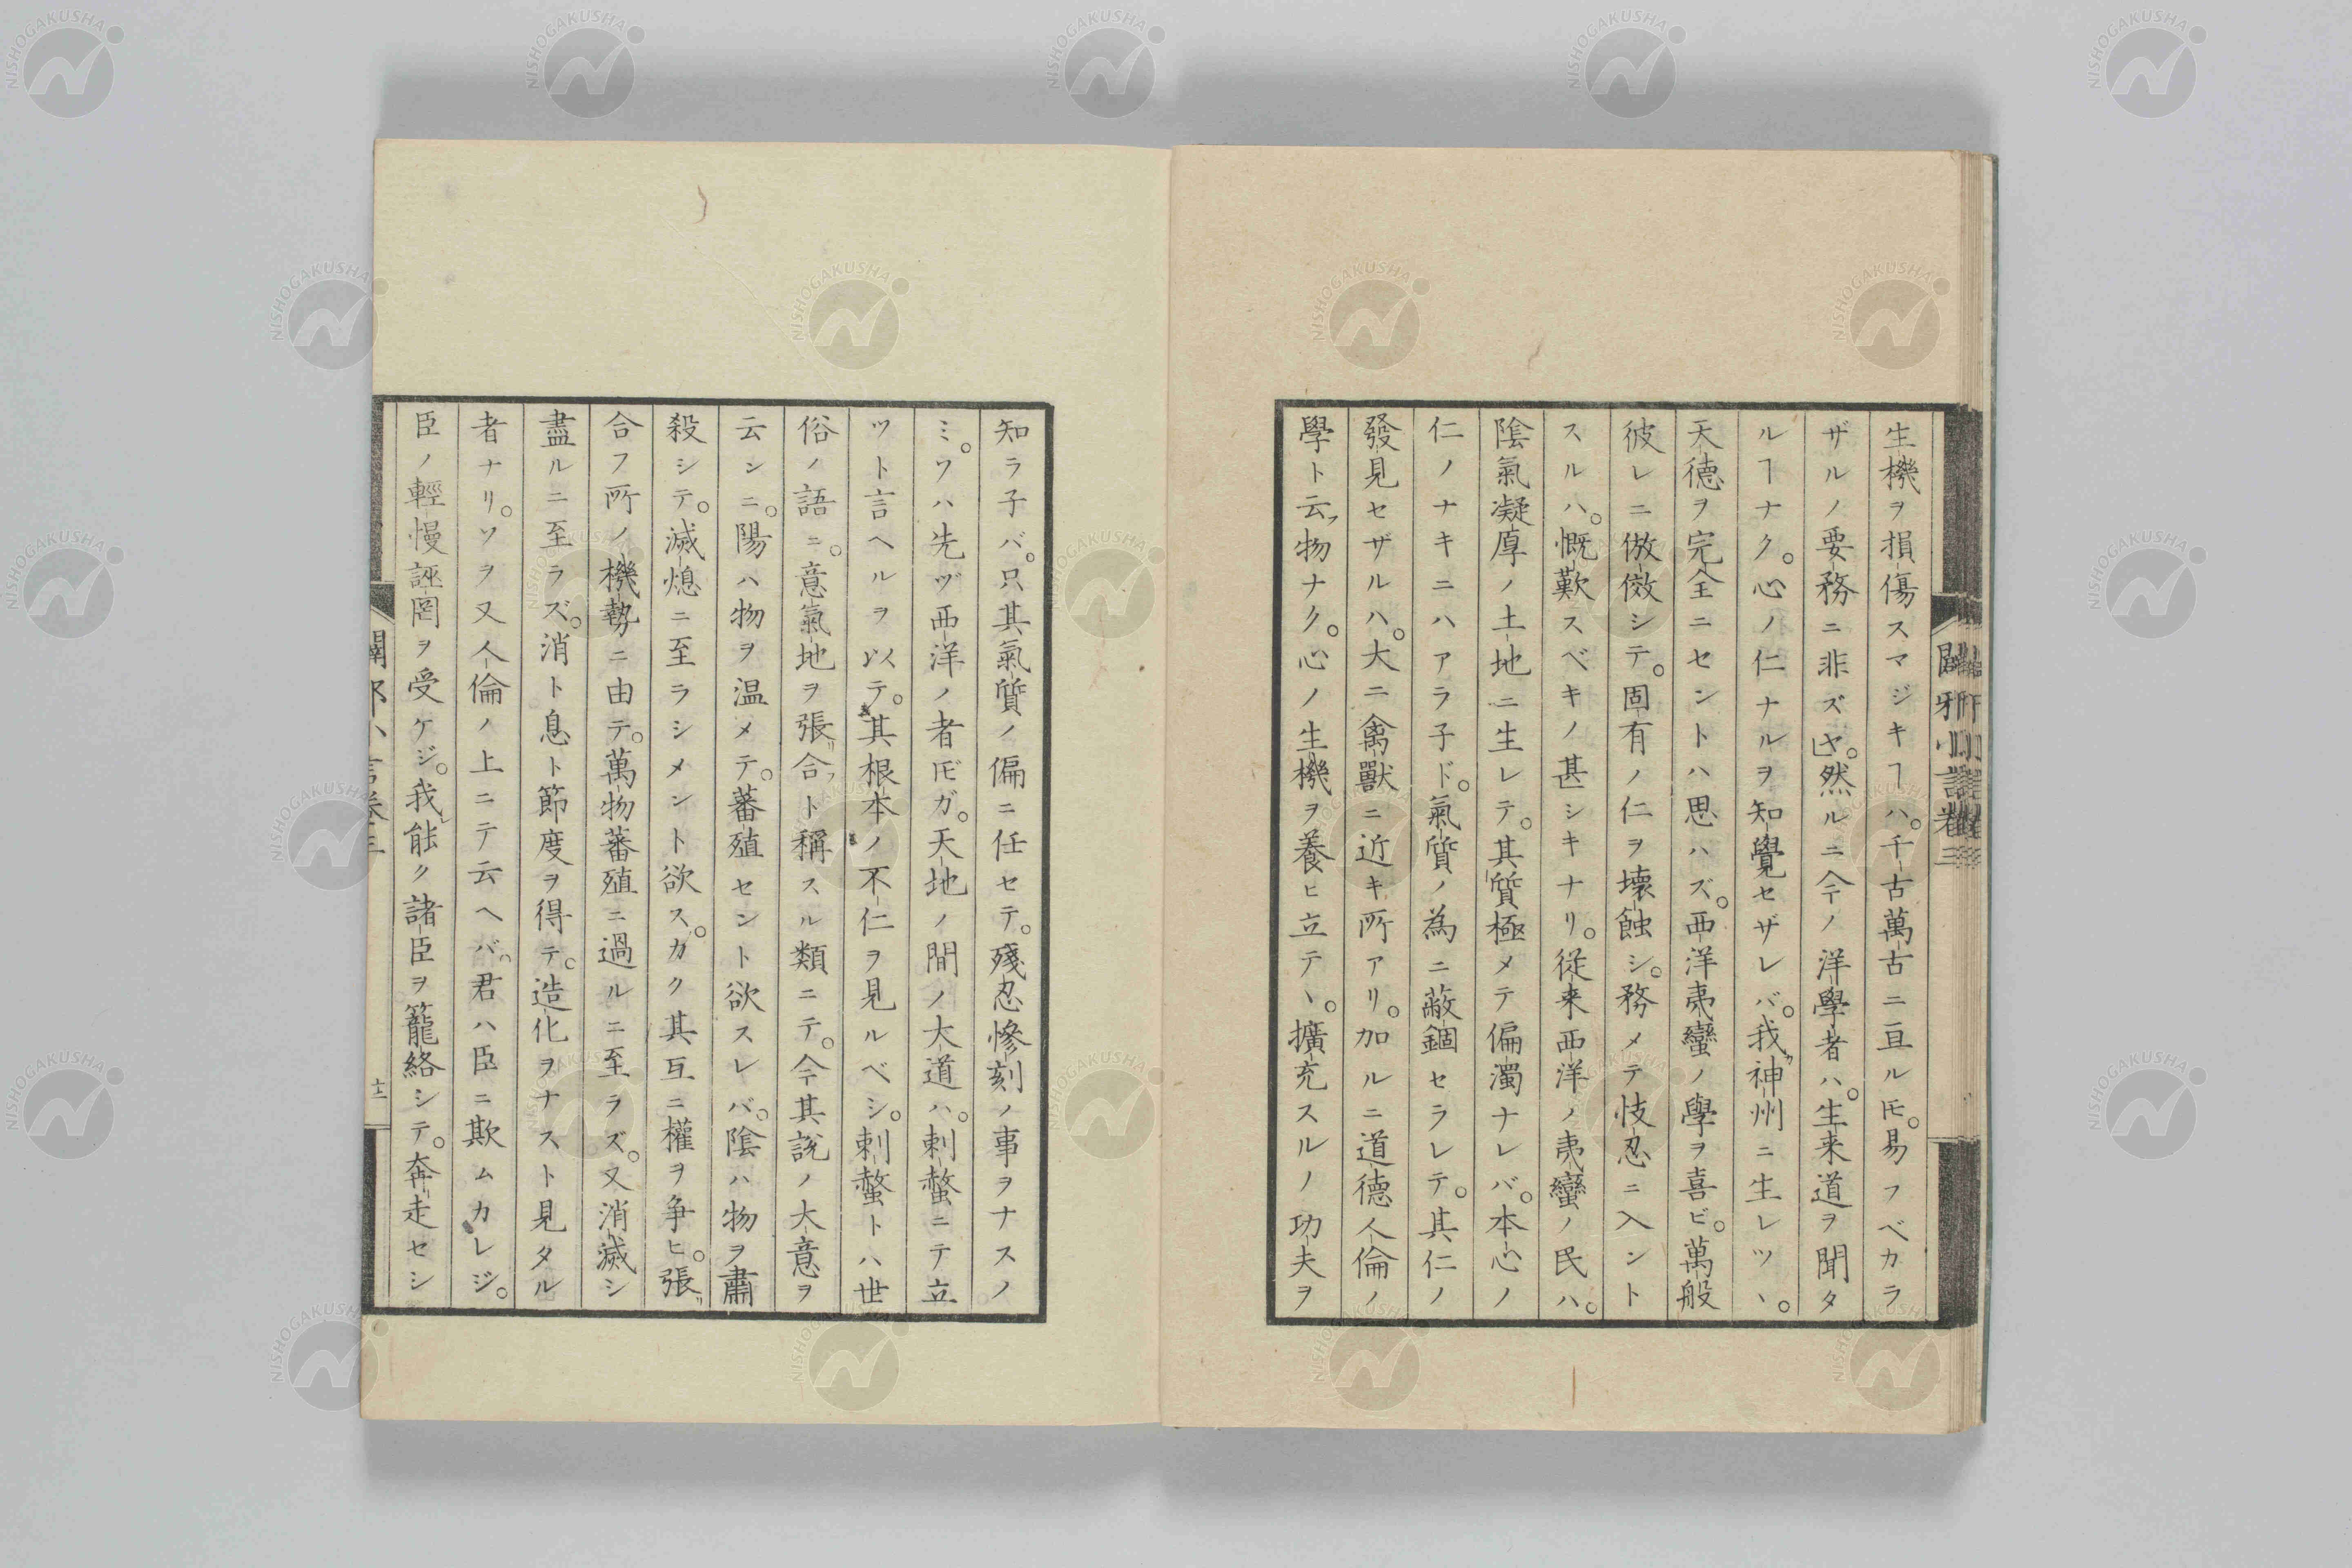 生機ヲ損傷スマジキヿハ。千古萬古ニ亘ルㇳモ。易フベカラ
ザルノ要務ニ非ズヤ。然ルニ今ノ洋學者ハ。生来道ヲ聞タ
ルヿナク。心ノ仁ナルヲ知覺セザレバ。我神州ニ生レツヽ。
天德ヲ完全ニセントハ思ハズ。西洋夷蠻ノ學ヲ喜ビ。萬般
彼レニ倣傚シテ。固有ノ仁ヲ壊蝕シ。務メテ忮忍ニ入ント
スルハ。慨歎スベキノ甚シキナリ。従来西洋ノ夷蠻ノ民ハ。
陰氣凝厚ノ土地ニ生レテ。其質極メテ偏濁ナレバ。本心ノ
仁ノナキニハアラ子ド。氣質ノ為ニ蔽錮セラレテ。其仁ノ
發見セザルハ。大ニ禽獸ニ近キ所アリ。加ルニ道德人倫ノ
學ト云フ物ナク。心ノ生機ヲ養ヒ立テヽ。擴充スルノ功夫ヲ
闢邪小言卷三
知ラ子バ。只其氣質ノ偏ニ任セテ。殘忍慘刻ノ事ヲナスノ
ミ。ワハ先ヅ西洋ノ者𪜈ガ。天地ノ間ノ大道ハ。刺螫ニテ立
ツト言ヘルヲ以テ。其根本ノ不仁ヲ見ルベシ。刺螫トハ世
俗ノ語ニ。意氣地ヲ張合フト稱スル類ニテ。今其說ノ大意ヲ
云ンニ。陽ハ物ヲ温メテ。蕃殖セント欲スレバ。陰ハ物ヲ肅
殺シテ。滅熄ニ至ラシメント欲ス。カク其互ニ權ヲ争ヒ。張
合フ所ノ機勢ニ由テ。萬物蕃殖ニ過ルニ至ラズ。又消滅シ
盡ルニ至ラズ。消ト息ト節度ヲ得テ。造化ヲナスト見タル
者ナリ。ソヲ又人倫ノ上ニテ云ヘバ。君ハ臣ニ欺ムカレジ。
臣ノ輕慢誣罔ヲ受ケジ。我能ク諸臣ヲ籠絡シテ。奔走セシ
闢邪小言卷三
十二
NISHOGAKUSHA